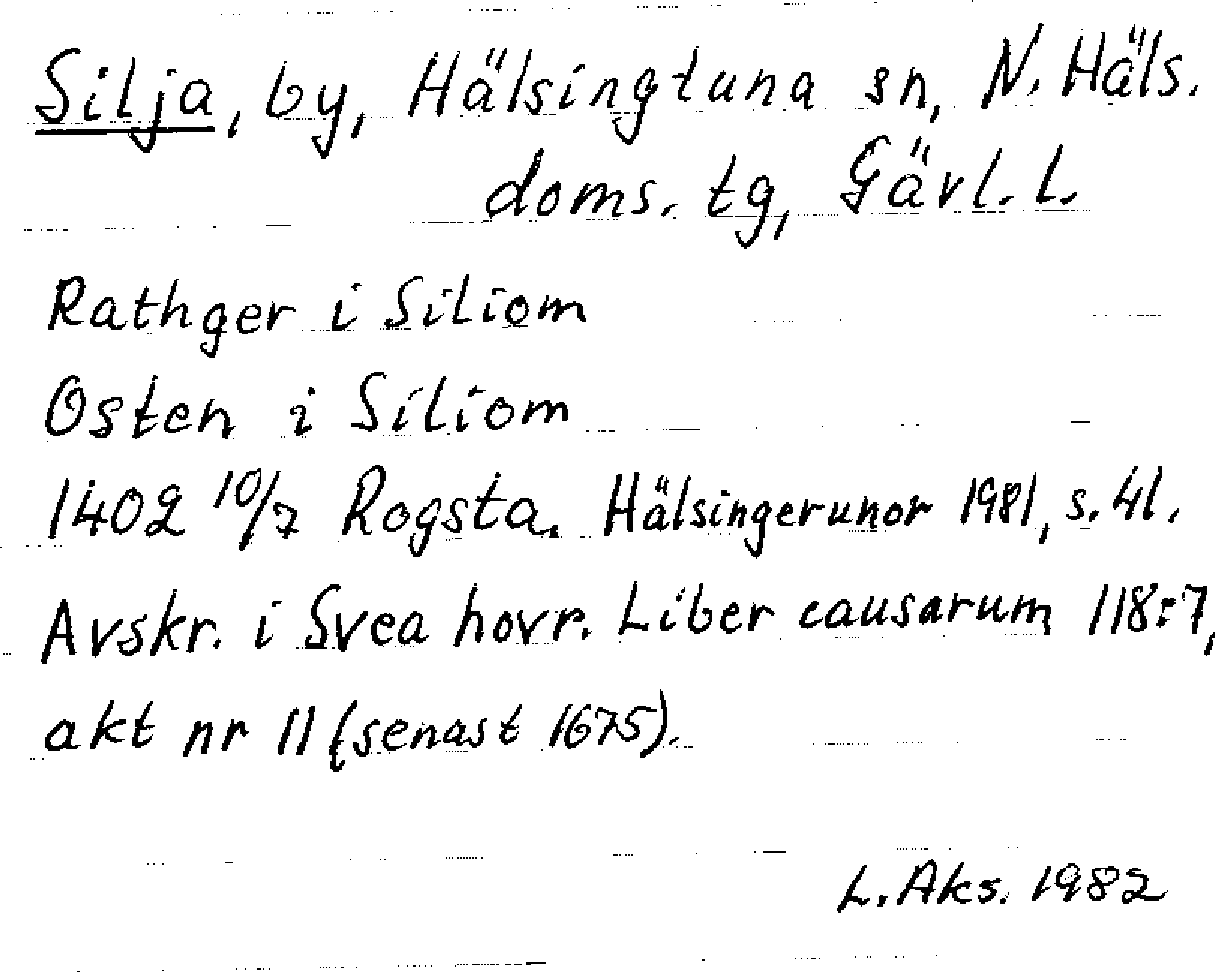 Silja, by, Hälsingtuna sn, N. Häls.
doms. tg, Gävl. L.
Rathger i Siliom
Osten i Siliom
1402 10/7 Rogsta. Hälsingerunor 1981, s. 41.
Avskr. i Svea hovr. Liber causarum 118:7,
akt nr 11 (senast 1675).
L. Aks. 1982